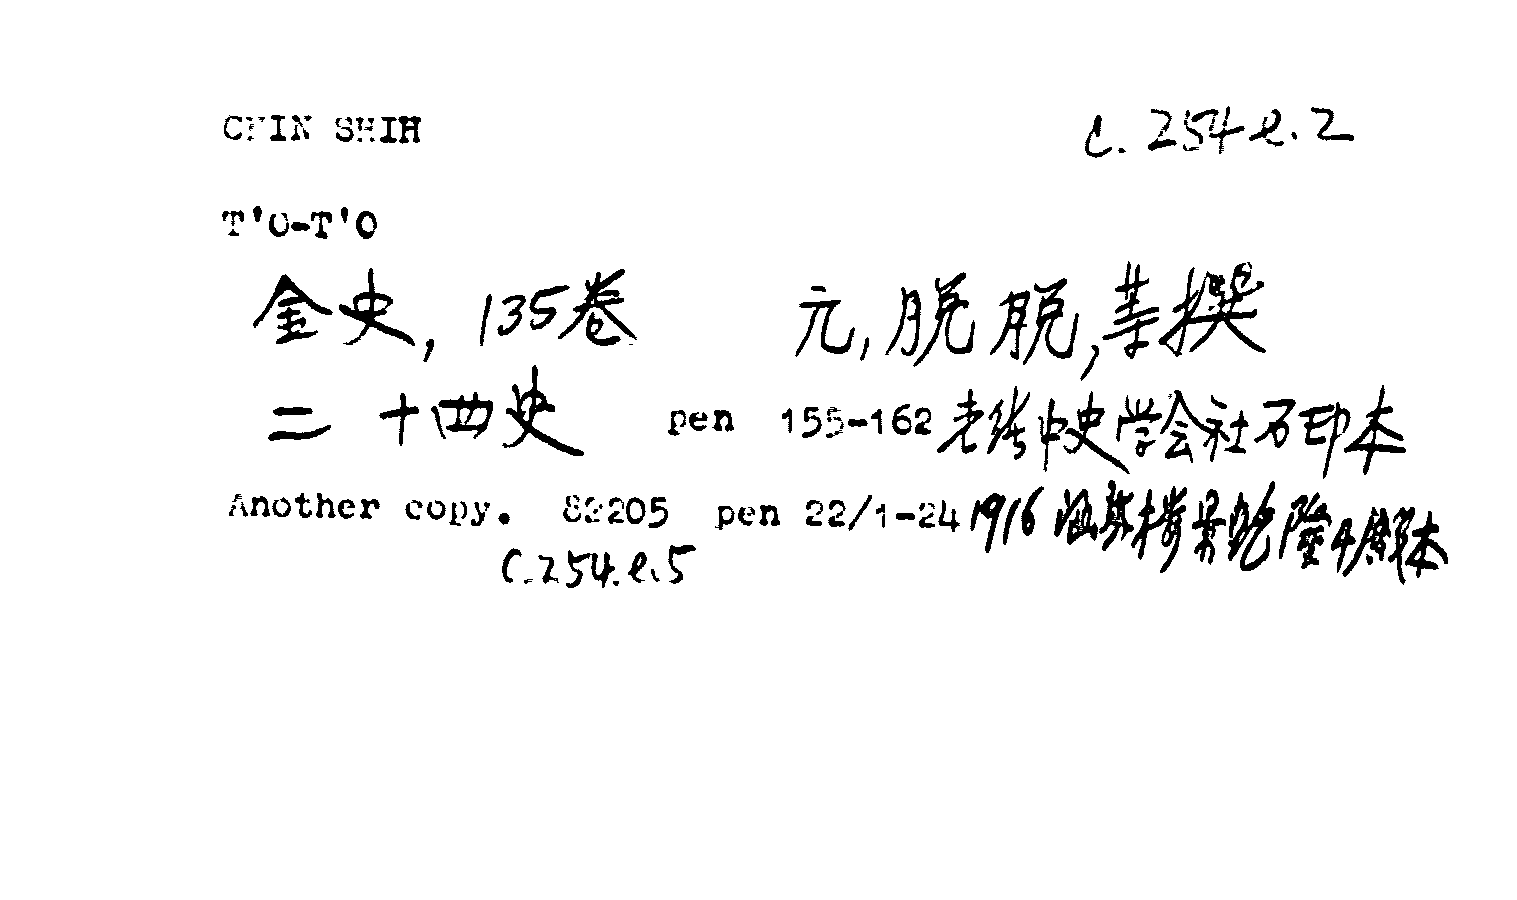 CHIN SHIH c.254 e.2
T'O-T'O
金史, 135卷 元, 脱脱, 等撰
二十四史 pen 155-162 史学会社石印本
Another copy. 82205 pen 22/1-24 1916 涵芬楼景乾隆本
c.254.e.5